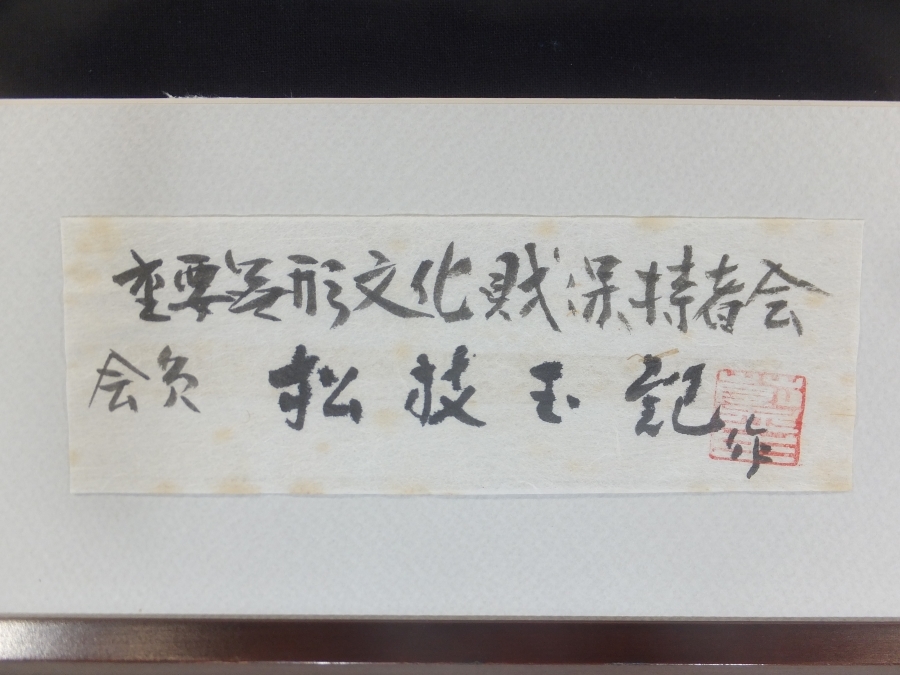 重要無形文化財保持者会
会員 松枝玉記 作